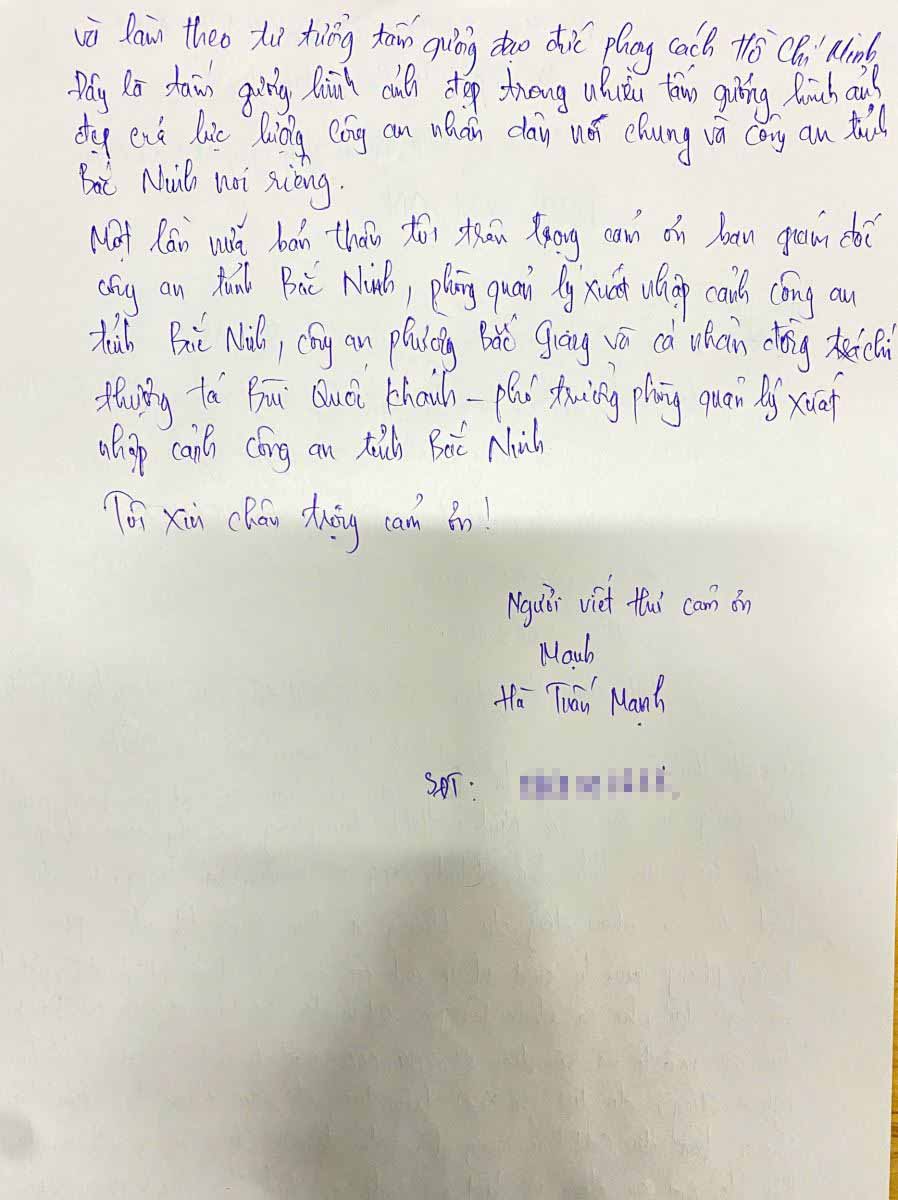 và làm theo tư tưởng tấm gương đạo đức phong cách Hồ Chí Minh.
Đây là tấm gương, hình ảnh đẹp trong nhiều tấm gương hình ảnh
đẹp của lực lượng công an nhân dân nói chung và công an tỉnh
Bắc Ninh nói riêng.
Một lần nữa bản thân tôi trân trọng cảm ơn ban giám đốc
công an tỉnh Bắc Ninh, phòng quản lý xuất nhập cảnh công an
tỉnh Bắc Ninh, công an phường Bắc Giang và cá nhân đồng chí
thượng tá Bùi Quốc Khánh - phó trưởng phòng quản lý xuất
nhập cảnh công an tỉnh Bắc Ninh
Tôi xin chân trọng cảm ơn!
Người viết thư cảm ơn
Mạnh
Hà Tuấn Mạnh
SĐT: